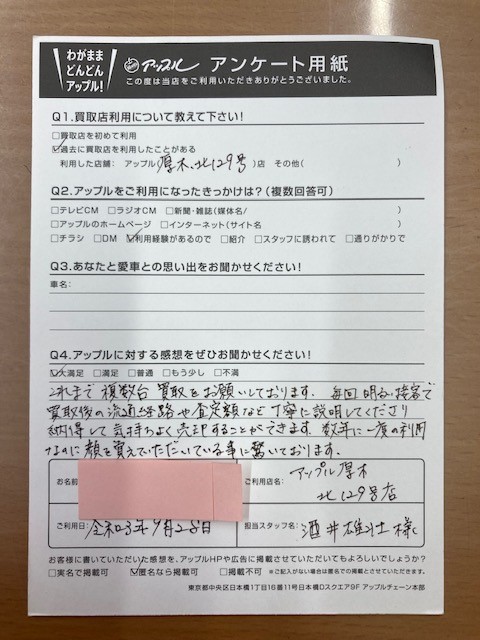 わがまま
どんどん
アップル!
アップル アンケート用紙
この度は当店をご利用いただきありがとうございました。
Q1.買取店利用について教えて下さい!
□買取店を初めて利用
☑過去に買取店を利用したことがある
利用した店舗: アップル(厚木、北129号)店 その他( )
Q2.アップルをご利用になったきっかけは?(複数回答可)
□テレビCM □ラジオCM □新聞・雑誌(媒体名/ )
□アップルのホームページ □インターネット(サイト名 )
□チラシ □DM ☑利用経験があるので □紹介 □スタッフに誘われて □通りがかりで
Q3.あなたと愛車との思い出をお聞かせください!
車名:
Q4.アップルに対する感想をぜひお聞かせください!
☑大満足 □満足 □普通 □もう少し □不満
これまで複数台買取をお願いしております。毎回明るい接客で
買取後の流通経路や査定額など丁寧に説明してくださり
納得して気持ちよく売却することができます。数年に一度の利用
なのに顔を覚えていただいている事に驚いております。
お名前
ご利用店名: アップル厚木
北129号店
ご利用日: 令和3年9月28日 担当スタッフ名: 酒井雄士様
お客様に書いていただいた感想を、アップルHPや広告に掲載させていただいてもよろしいでしょうか?
□実名で掲載可 ☑匿名なら掲載可 □掲載不可 ※ご記入がない場合は匿名での掲載とさせていただきます。
東京都中央区日本橋1丁目16番11号日本橋Dスクエア9F アップルチェーン本部